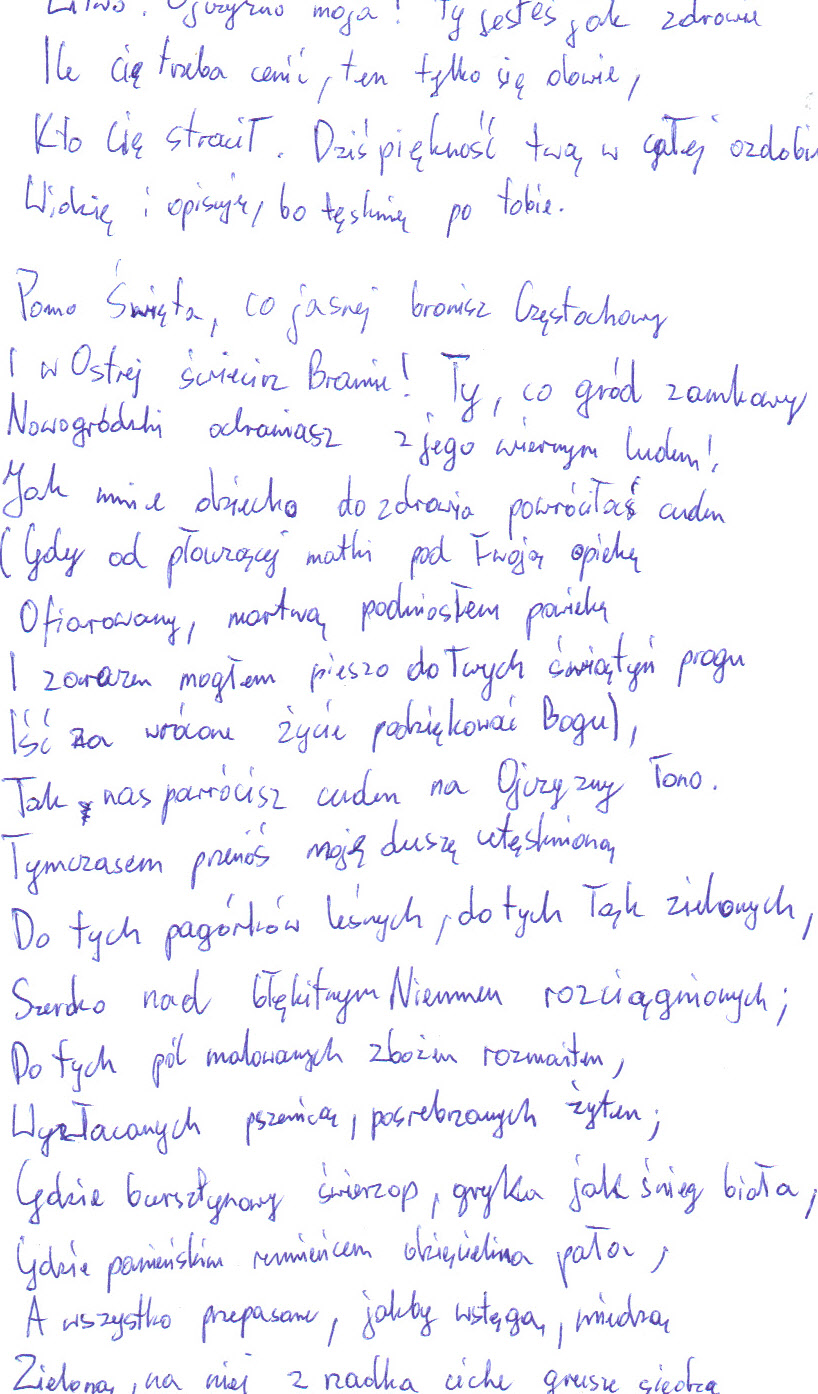 Litwo! Ojczyzno moja! Ty jesteś jak zdrowie
Ile cię trzeba cenić, ten tylko się dowie,
Kto Cię stracił. Dziś piękność twą w całej ozdobie
Widzię i opisuję, bo tęsknię po tobie.
Panno Święta, co jasnej bronisz Częstochowy
I w Ostrej świecisz Bramie! Ty, co gród zamkowy
Nowogródzki ochraniasz z jego wiernym ludem!
Jak mnie dziecko do zdrowia powróciłaś cudem
(Gdy od płaczącej matki pod Twoją opiekę
Ofiarowany, martwą podniosłem powiekę
I zarazem mogłem pieszo do Twych świątyń progu
Iść za wrócone życie podziękować Bogu),
Tak nas powrócisz cudem na Ojczyzny łono.
Tymczasem przenoś moję duszę utęsknioną
Do tych pagórków leśnych, do tych łąk zielonych,
Szeroko nad błękitnym Niemnem rozciągnionych;
Do tych pól malowanych zbożem rozmaitem,
Wyzłacanych pszenicą, posrebrzanych żytem;
Gdzie bursztynowy świerzop, gryka jak śnieg biała,
Gdzie panieńskim rumieńcem dzięcielina pała,
A wszystko przepasane, jakby wstęgą, miedzą
Zieloną, na niej z rzadka ciche grusze siedzą